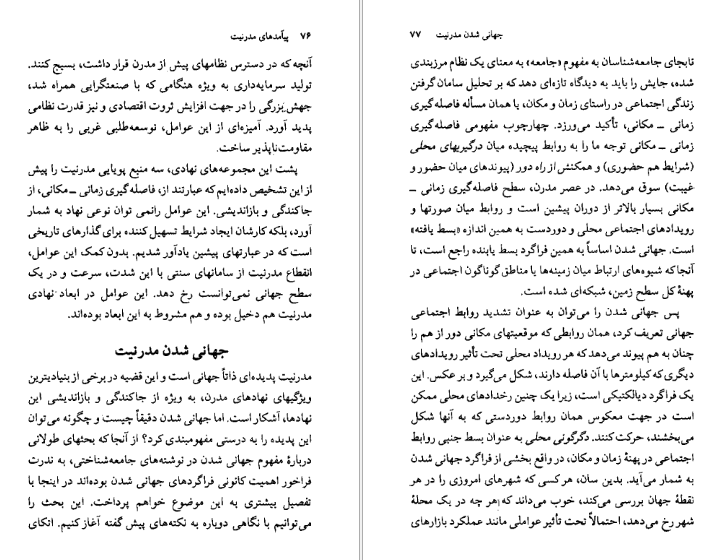 ۷۶ پیآمدهای مدرنیت
آنچه که در دسترس نظامهای پیش از مدرن قرار داشت، بسیج کنند.
تولید سرمایه‌داری به ویژه هنگامی که با صنعتگرایی همراه شد،
جهش بزرگی را در جهت افزایش ثروت اقتصادی و نیز قدرت نظامی
پدید آورد. آمیزه‌ای از این عوامل، توسعه‌طلبی غربی را به ظاهر
مقاومت‌ناپذیر ساخت.
پشت این مجموعه‌های نهادی، سه منبع پویایی مدرنیت را پیش
از این تشخیص داده‌ایم که عبارتند از، فاصله‌گیری زمانی ــ مکانی، از
جاکندگی و بازاندیشی. این عوامل رانمی توان نوعی نهاد به شمار
آورد، بلکه کارشان ایجاد شرایط تسهیل کننده برای گذارهای تاریخی
است که در عبارتهای پیشین یادآور شدیم. بدون کمک این عوامل،
انقطاع مدرنیت از سامانهای سنتی با این شدت، سرعت و در یک
سطح جهانی نمی‌توانست رخ دهد. این عوامل در ابعاد نهادی
مدرنیت هم دخیل بوده و هم مشروط به این ابعاد بوده‌اند.
جهانی شدن مدرنیت
مدرنیت پدیده‌ای ذاتاً جهانی است و این قضیه در برخی از بنیادیترین
ویژگیهای نهادهای مدرن، به ویژه از جاکندگی و بازاندیشی این
نهادها، آشکار است. اما جهانی شدن دقیقاً چیست و چگونه می‌توان
این پدیده را به درستی مفهومبندی کرد؟ از آنجا که بحثهای طولانی
دربارهٔ مفهوم جهانی شدن در نوشته‌های جامعه‌شناختی، به ندرت
فراخور اهمیت کانونی فراگردهای جهانی شدن بوده‌اند در اینجا با
تفصیل بیشتری به این موضوع خواهم پرداخت. این بحث را
می‌توانیم با نگاهی دوباره به نکته‌های پیش گفته آغاز کنیم. اتکای
جهانی شدن مدرنیت ۷۷
نابجای جامعه‌شناسان به مفهوم «جامعه» به معنای یک نظام مرزبندی
شده، جایش را باید به دیدگاه تازه‌ای دهد که بر تحلیل سامان گرفتن
زندگی اجتماعی در راستای زمان و مکان، یا همان مسأله فاصله‌گیری
زمانی ــ مکانی، تأکید می‌ورزد. چهارچوب مفهومی فاصله‌گیری
زمانی ــ مکانی توجه ما را به روابط پیچیده میان درگیریهای محلی
(شرایط هم حضوری) و همکنش از راه دور (پیوندهای میان حضور و
غیبت) سوق می‌دهد. در عصر مدرن، سطح فاصله‌گیری زمانی ــ
مکانی بسیار بالاتر از دوران پیشین است و روابط میان صورتها و
رویدادهای اجتماعی محلی و دوردست به همین اندازه «بسط یافته»
است. جهانی شدن اساساً به همین فراگرد بسط یابنده راجع است، تا
آنجا که شیوه‌های ارتباط میان زمینه‌ها یا مناطق گوناگون اجتماعی در
پهنهٔ کل سطح زمین، شبکه‌ای شده است.
پس جهانی شدن را می‌توان به عنوان تشدید روابط اجتماعی
جهانی تعریف کرد، همان روابطی که موقعیتهای مکانی دور از هم را
چنان به هم پیوند می‌دهد که هر رویداد محلی تحت تأثیر رویدادهای
دیگری که کیلومترها با آن فاصله دارند، شکل می‌گیرد و بر عکس. این
یک فراگرد دیالکتیکی است، زیرا یک چنین رخدادهای محلی ممکن
است در جهت معکوس همان روابط دوردستی که به آنها شکل
می‌بخشند، حرکت کنند. دگرگونی محلی به عنوان بسط جنبی روابط
اجتماعی در پهنهٔ زمان و مکان، در واقع بخشی از فراگرد جهانی شدن
به شمار می‌آید. بدین سان، هر کسی که شهرهای امروزی را در هر
نقطهٔ جهان بررسی می‌کند، خوب می‌داند که هر چه در یک محلهٔ
شهر رخ می‌دهد، احتمالاً تحت تأثیر عواملی مانند عملکرد بازارهای